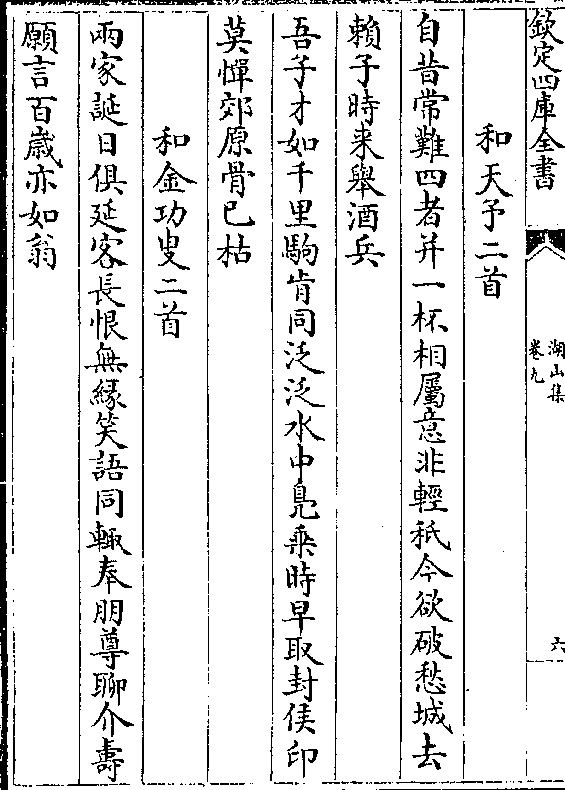 欽定四庫全書
湖山集
卷九
六
和天予二首
自昔常難四者并一杯相屬意非輕秖今欲破愁城去
賴子時来舉酒兵
吾子才如千里駒肯同泛泛水中鳬乗時早取封侯印
莫憚郊原骨已枯
和金功叟二首
兩家誕日俱延客長恨無縁笑語同輙奉朋尊聊介壽
願言百歲亦如翁